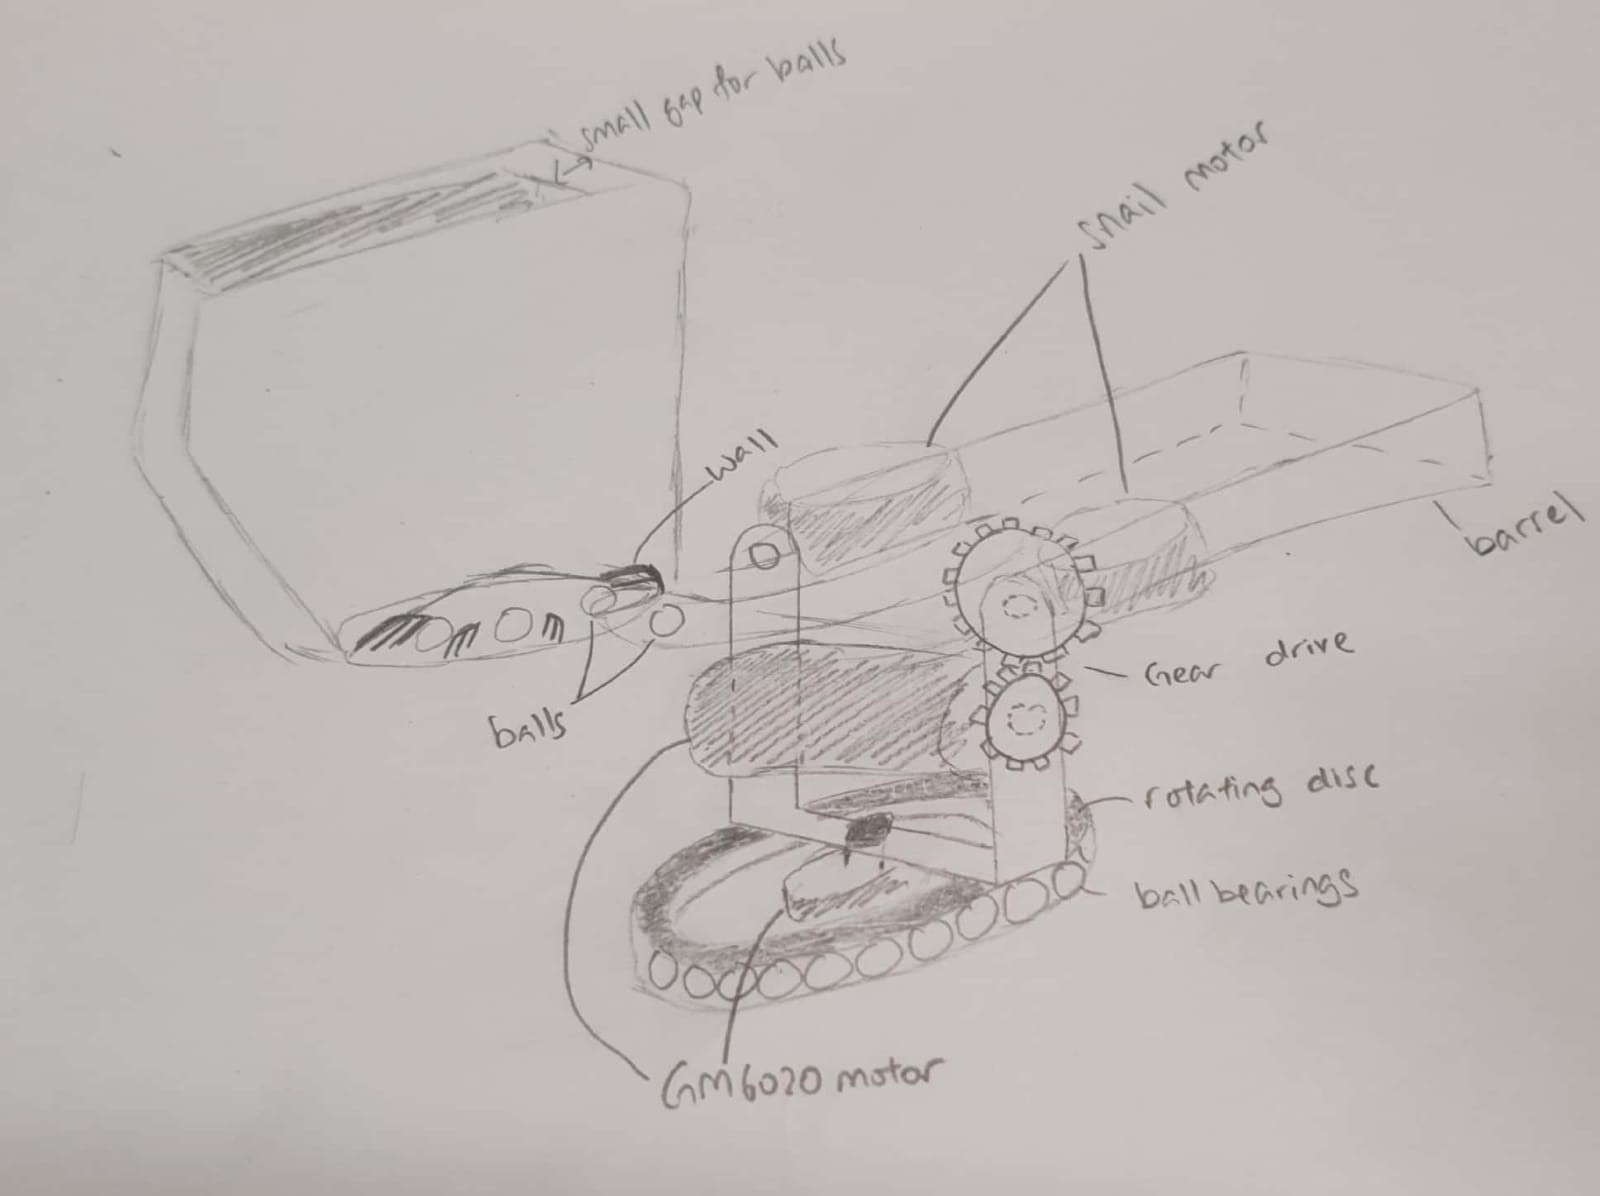 small gap for balls
snail motor
wall
barrel
balls
Gear drive
rotating disc
ball bearings
GM6020 motor